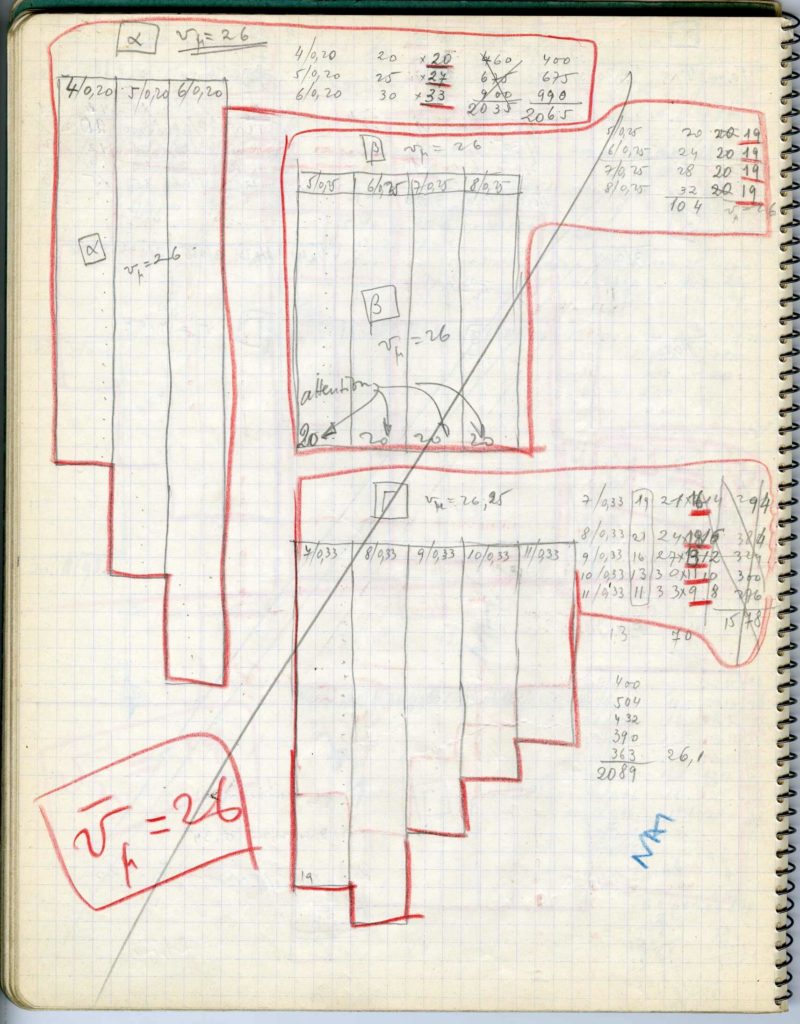 α v̄μ = 26
4/0,20 20 ×20 460 400
5/0,20 25 ×27 675 675
6/0,20 30 ×33 900 990
2035 2065
4/0,20 5/0,20 6/0,20
α
vμ = 26
β vμ = 26
5/0,25 6/0,25 7/0,25 8/0,25
β
v̄μ = 26
attention
20 20 20 20
5/0,25 20 20 19
6/0,25 24 20 19
7/0,25 28 20 19
8/0,25 32 20 19
104 vμ = 26
Γ v̄μ = 26,25
7/0,33 8/0,33 9/0,33 10/0,33 11/0,33
19
7/0,33 19 21× 14 294
8/0,33 21 24×
9/0,33 16 27×13 12 324
10/0,33 13 30×11 10 300
11/0,33 11 33×9 8
1578
13 70
400
504
432
390
363 26,1
2089
v̄μ = 26
NAI